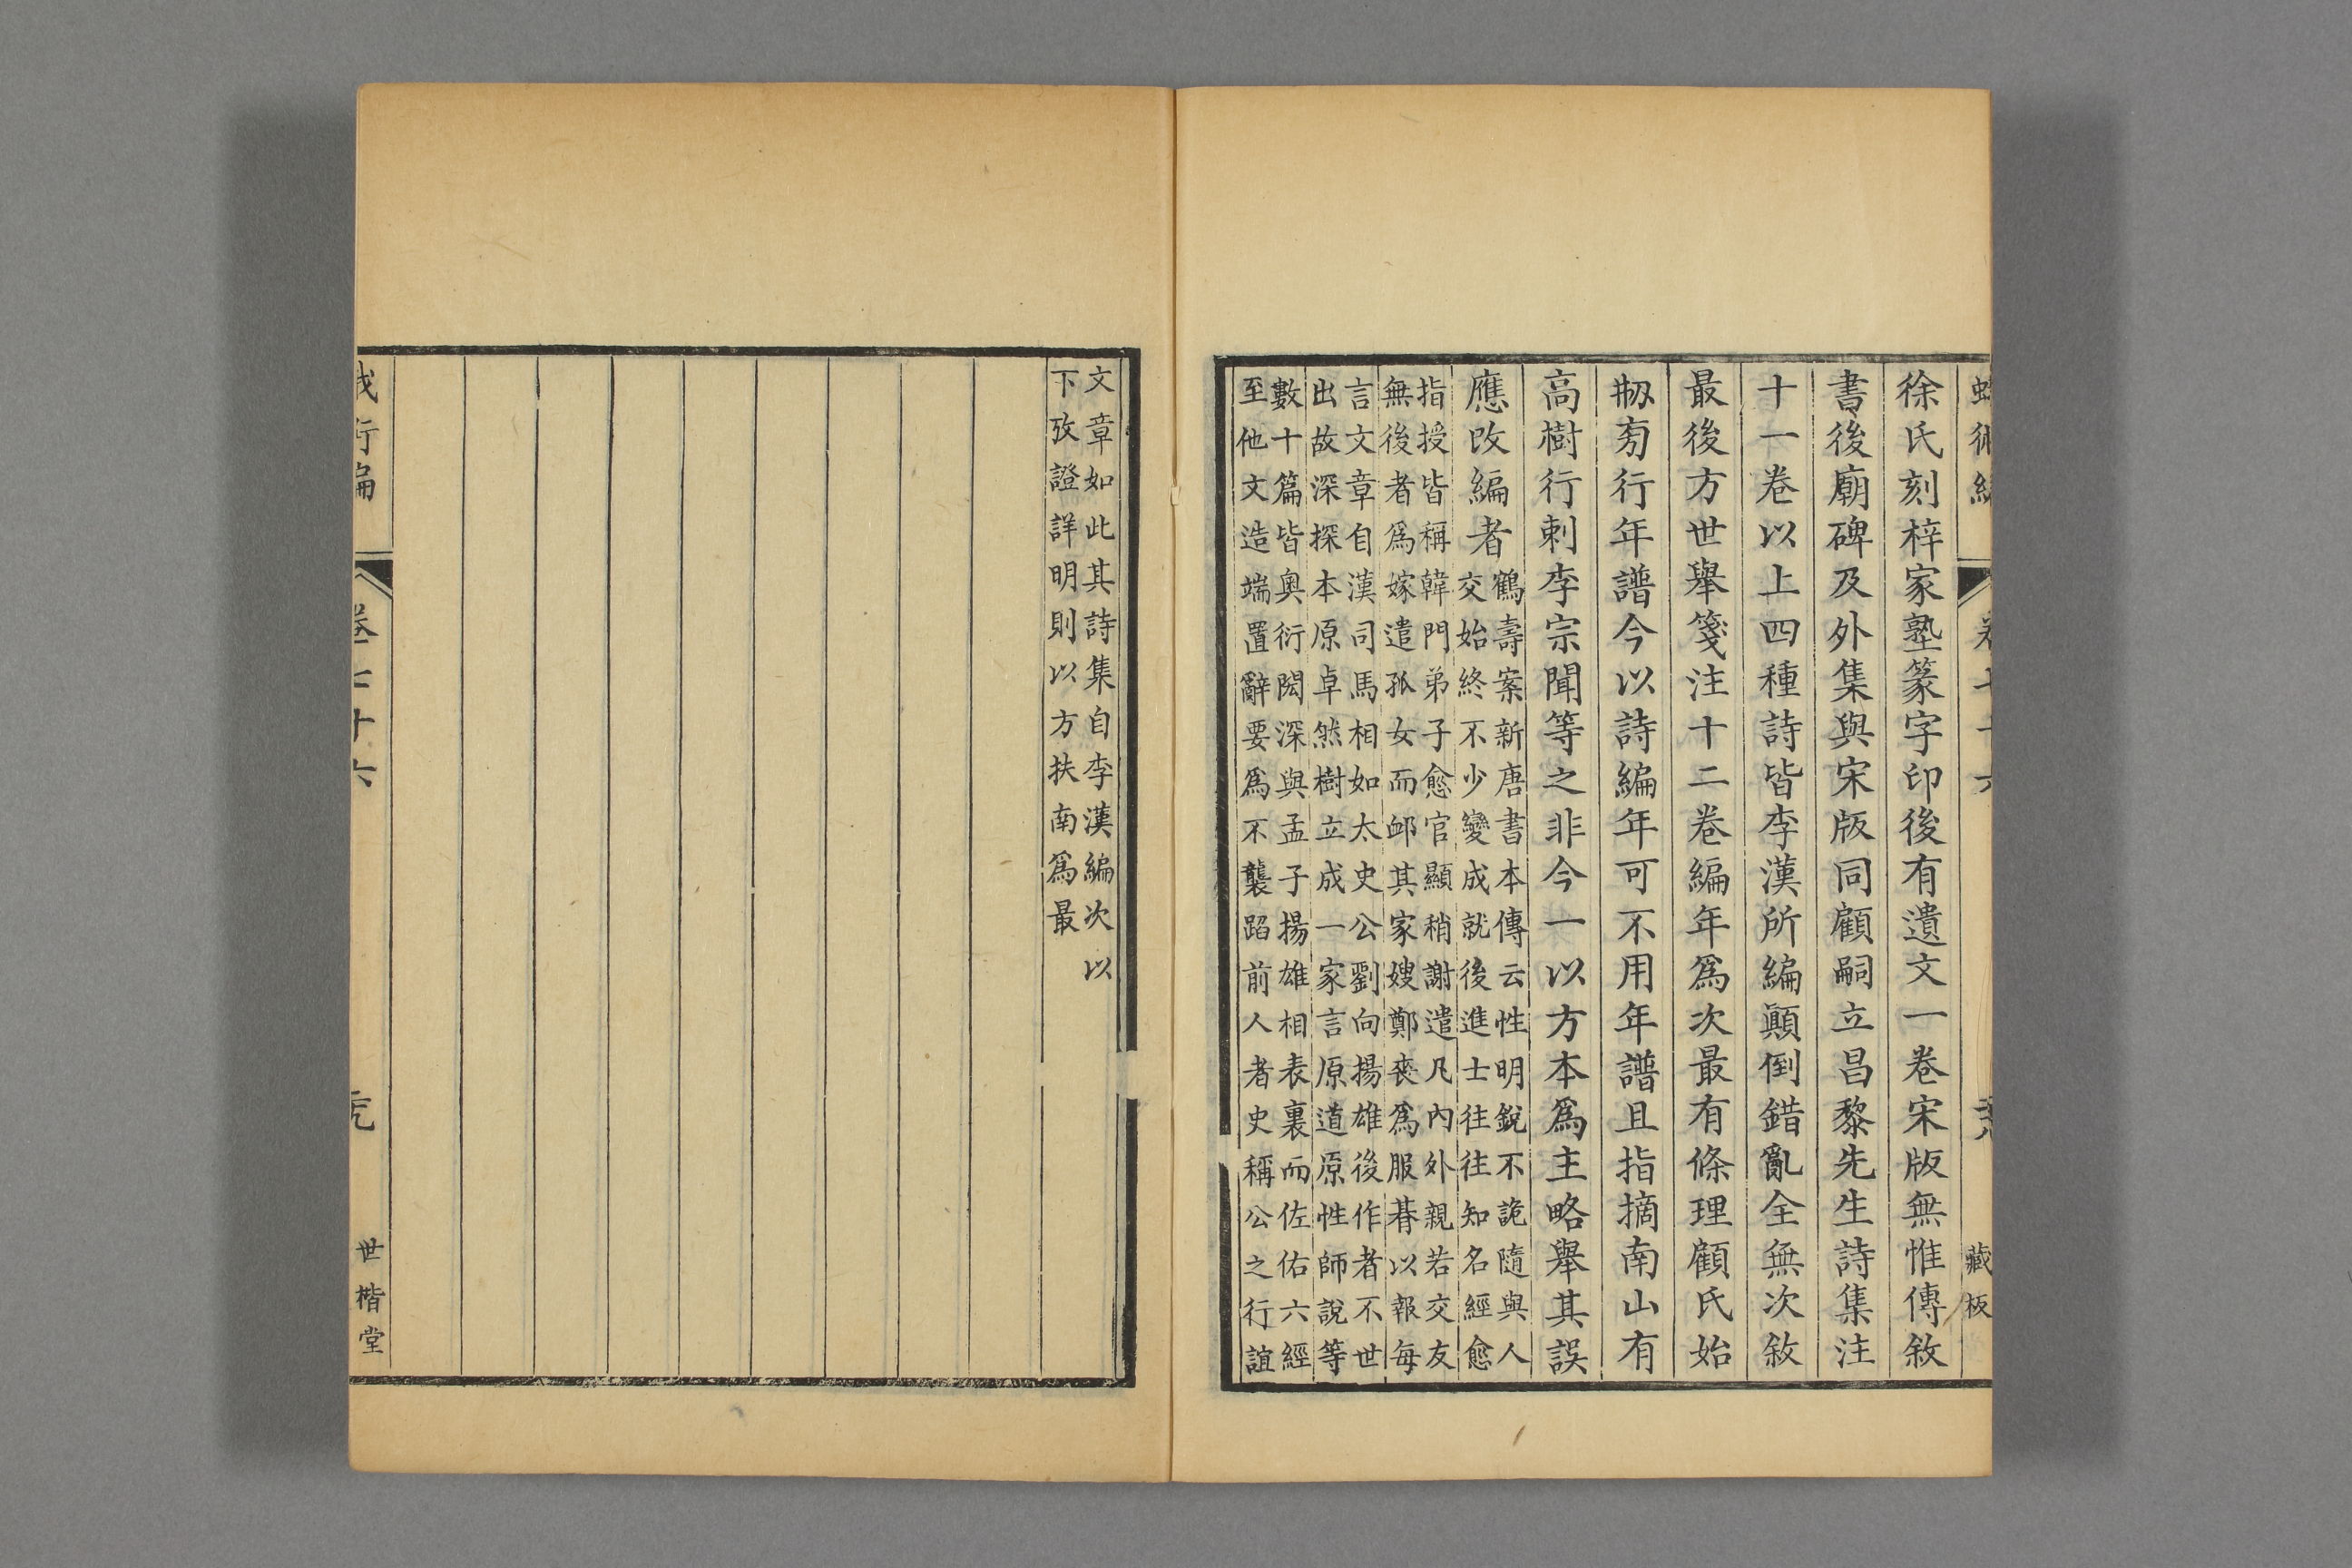 徐氏刻梓家塾篆字印後有遺文一卷宋版無惟傳敘
書後廟碑及外集與宋版同顧嗣立昌黎先生詩集注
十一卷以上四種詩皆李漢所編顚倒錯亂全無次敘
最後方世舉箋注十二卷編年爲次最有條理顧氏始
刱菊行年譜今以詩編年可不用年譜且指摘南山有
高樹行刺李宗閔等之非今一以方本爲主略舉其誤
應改編者
鶴壽案新唐書本傳云性明銳不詭隨與人
交始終不少變成就後進士往往知名經愈
指授皆稱韓門弟子愈官顯稍謝遣凡內外親若交友
無後者爲嫁遣孤女而卹其家嫂鄭喪爲服朞以報每
言文章自漢司馬相如太史公劉向揚雄後作者不世
出故深探本原卓然樹立成一家言原道原性師說等
數十篇皆奧衍閎深與孟子揚雄相表裏而佐佑六經
至他文造端置辭要爲不襲蹈前人者史稱公之行誼
藏板
文章如此其詩集自李漢編次以
下攷證詳明則以方扶南爲最
世楷堂